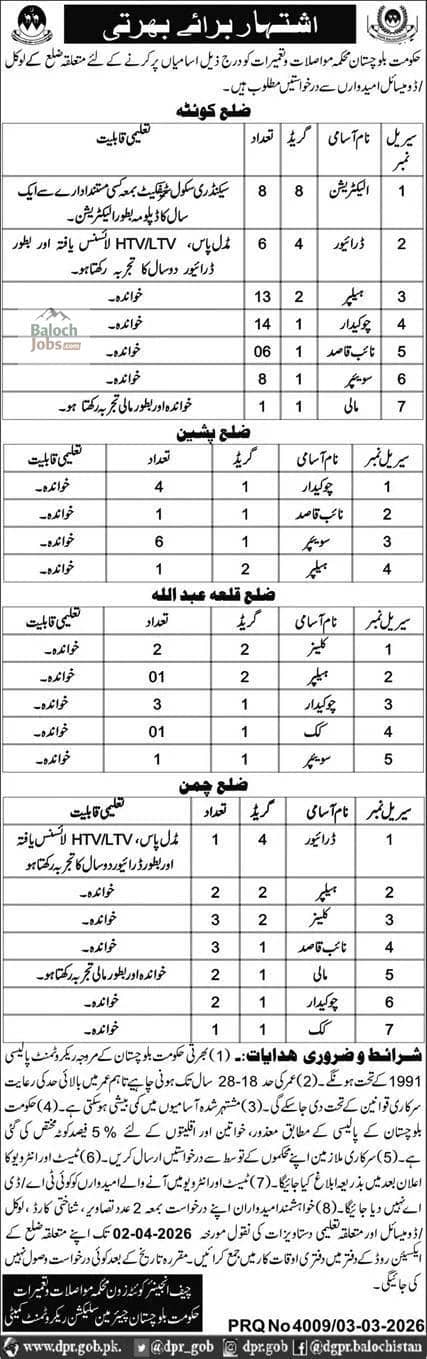 اشتہار برائے بھرتی
حکومت بلوچستان محکمہ مواصلات و تعمیرات کو درج ذیل اسامیاں پر کرنے کے لئے متعلقہ ضلع کے لوکل
/ ڈومیسائل امیدواران سے درخواستیں مطلوب ہیں۔
ضلع کوئٹہ
سیریل نمبر نام آسامی گریڈ تعداد تعلیمی قابلیت
1 الیکٹریشن 8 8 سیکنڈری سکول سرٹیفکیٹ بمعہ کسی مستند ادارے سے ایک
سال کا ڈپلومہ بطور الیکٹریشن۔
2 ڈرائیور 4 6 مڈل پاس، HTV/LTV لائسنس یافتہ اور بطور
ڈرائیور دو سال کا تجربہ رکھتا ہو۔
3 ہیلپر 2 13 خواندہ۔
4 چوکیدار 1 14 خواندہ۔
5 نائب قاصد 1 06 خواندہ۔
6 سویپر 1 8 خواندہ۔
7 مالی 1 1 خواندہ اور بطور مالی تجربہ رکھتا ہو۔
Baloch
Jobs.com
ضلع پشین
سیریل نمبر نام آسامی گریڈ تعداد تعلیمی قابلیت
1 چوکیدار 1 4 خواندہ۔
2 نائب قاصد 1 1 خواندہ۔
3 سویپر 1 6 خواندہ۔
4 ہیلپر 2 1 خواندہ۔
ضلع قلعہ عبد اللہ
سیریل نمبر نام آسامی گریڈ تعداد تعلیمی قابلیت
1 کلینر 2 2 خواندہ۔
2 ہیلپر 2 01 خواندہ۔
3 چوکیدار 1 3 خواندہ۔
4 کک 1 01 خواندہ۔
5 سویپر 1 1 خواندہ۔
ضلع چمن
سیریل نمبر نام آسامی گریڈ تعداد تعلیمی قابلیت
1 ڈرائیور 4 1 مڈل پاس، HTV/LTV لائسنس یافتہ
اور بطور ڈرائیور دو سال کا تجربہ رکھتا ہو
2 ہیلپر 2 2 خواندہ۔
3 کلینر 2 3 خواندہ۔
4 نائب قاصد 1 3 خواندہ۔
5 مالی 1 2 خواندہ اور بطور مالی تجربہ رکھتا ہو۔
6 چوکیدار 1 2 خواندہ۔
7 کک 1 1 خواندہ۔
شرائط و ضروری ہدایات:۔ (1) بھرتی حکومت بلوچستان کے مروجہ ریکروٹمنٹ پالیسی
1991 کے تحت ہونگے۔ (2) عمر کی حد 18-28 سال تک ہونی چاہیے تاہم عمر میں بالائی حد کی رعایت
سرکاری قوانین کے تحت دی جا سکے گی۔ (3) مشتہر شدہ آسامیوں میں کمی بیشی ہو سکتی ہے۔ (4) حکومت
بلوچستان کے پالیسی کے مطابق معذور، خواتین اور اقلیتوں کے لئے 5 % فیصد کوٹہ مختص کی گئی
ہے۔ (5) سرکاری ملازمین اپنے محکموں کے توسط سے درخواستیں ارسال کریں۔ (6) ٹیسٹ اور انٹرویو کا
اعلان بعد میں بذریعہ ابلاغ کیا جائیگا۔ (7) ٹیسٹ اور انٹرویو میں آنے والے امیدواران کو کوئی ٹی اے / ڈی
اے نہیں دیا جائیگا۔ (8) خواہشمند امیدواران اپنے درخواست بمعہ 2 عدد تصاویر، شناختی کارڈ، لوکل
/ ڈومیسائل اور متعلقہ تعلیمی دستاویزات کی نقول مورخہ 02-04-2026 تک اپنے متعلقہ ضلع کے
ایکسیئن روڈ کے دفتر میں دفتری اوقات کار میں جمع کرائیں۔ مقررہ تاریخ کے بعد کوئی درخواست وصول نہیں
کی جائیگی۔
چیف انجینئر کوئٹہ زون محکمہ مواصلات و تعمیرات
حکومت بلوچستان چیئرمین سلیکشن ریکروٹمنٹ کمیٹی
PRQ No 4009/03-03-2026
www.dpr.gob.pk. @dpr_gob @dgpr.balochistan